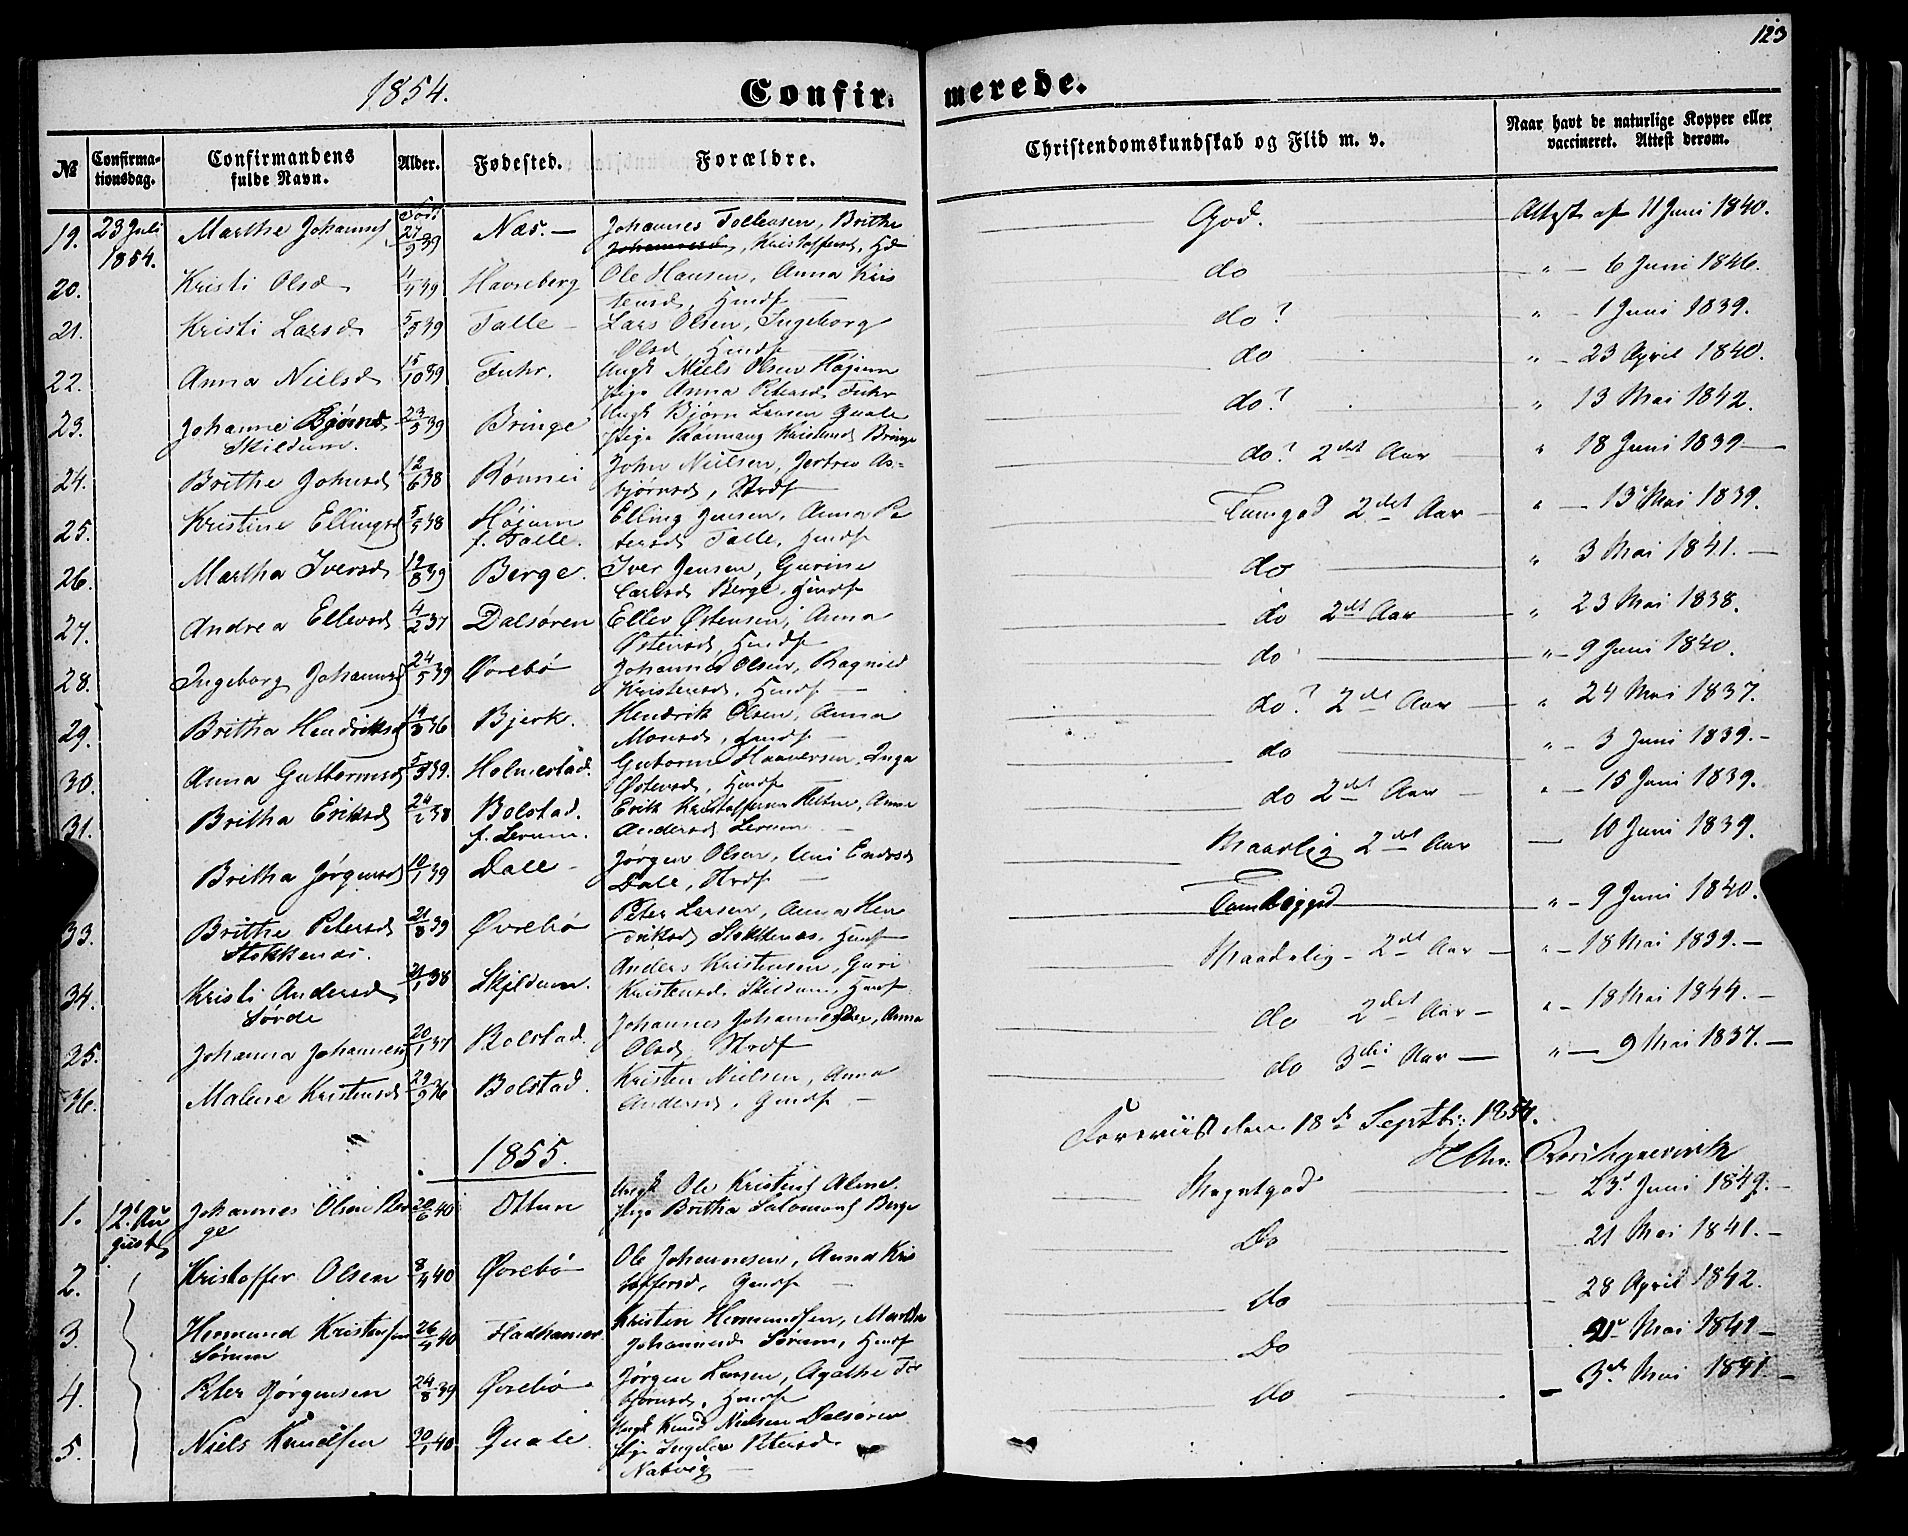 123
1854. Confirmerede.
№ Confirmationsdag. Confirmandens fulde Navn. Alder. Fødested. Forældre. Christendomskundskab og Flid m. v. Naar havt de naturlige Kopper eller vaccineret. Attest derom.
19. 23 Juli 1854. Marthe Johannesd Født 27/9 39 Næs. Johannes Tollevsen, Brithe Johannesd, Kristoffersd, God. Attest af 11 Juni 1840.
20. Kristi Olsd 4/4 39 Havreberg Ole Hansen, Anna Kristensd, Gmdf do " 6 Juni 1846.
21. Kristi Larsd 5/5 39 Talle Lars Olsen, Ingeborg Olsd, Gmdf do? " 1 Juni 1839.
22. Anna Nielsd 15/10 39 Fuhr. Ungk Niels Olsen Højum Pige Anna Petersd Fuhr do " 23 April 1840.
23. Johanne Bjørnsd Skildum. 23/5 39 Bringe Ungk Bjørn Larsen Quale Pige Rønnaug Kristensd Bringe do? " 13 Mai 1842.
24. Brithe Johnsd 12/6 38 Rønnei John Nielsen, Jertru Asbjørnsd, Strdf do? 2det Aar " 18 Juni 1839
25. Kristine Ellingsd 5/5 38 Højum f. Talle. Elling Jensen, Anna Petersd Talle, Gmdf Temgod 2det Aar " 13 Mai 1839.
26. Martha Iversd 12/8 39 Berge. Iver Jensen, Gurine Carlsd Berge, Gmdf do " 3 Mai 1841.
27. Andrea Ellevsd 4/2 37 Dalsøren Ellev Østensen, Anna Østensd, Gmdf do 2det Aar " 23 Mai 1838.
28. Ingeborg Johannesd 24/5 39 Øvrebø Johannes Olsen, Ragnild Kristensd, Gmdf do " 9 Juni 1840.
29. Britha Hendriksd 36 Bjerk. Hendrik Olsen, Anna Monsd, Gmdf do? 2det Aar " 24 Mai 1837.
30. Anna Guttormsd 39. Holmestad. Gutorm Haaversen, Inga Østensd, Gmdf do " 3 Juni 1839.
31. Britha Eriksd 38 Bolstad. f. Lerum. Erik Kristoffersen, Anna Andersd Lerum do 2det Aar " 15 Juni 1839.
Britha Jørgensd 10/1 39 Dale Jørgen Olsen, Uni Endresd Dale, Strdf Maadelig 2det Aar 10 Juni 1839.
33. Brithe Petersd Stokkenæs. 21/8 39 Øvrebø Peter Larsen, Anna Hendriksd Stokkenæs, Gmdf Temlig god " 9 Juni 1840.
34. Kristi Andersd Sørde 21/1 38 Skjeldum. Anders Kristensen, Guri Kristensd. Skildum, Gmdf Maadelig 2det Aar " 18 Mai 1839.
25. Johanna Johannesd 20/1 37 Bolstad Johannes Johannessen, Anna Olsd, Strdf do 2det Aar " 18 Mai 1844.
36. Malene Kristensd 29/9 36 Bolstad. Kristen Nielsen, Anna Andersd, Gmdf do 3die Aar " 9 Mai 1837.
Foreviist den 18de Septbr: 1854.
1855.
1. 12 August Johannes Olsen Berge 20/6 40 Ottum Ungk Ole Kristens Alme. Pige Britha Salomons Berge Megetgod 23 Juni 1849.
2. Kristoffer Olsen 8/4 40 Øvrebø Ole Johannesen, Anna Kristoffersd, Gmdf Do 21 Mai 1841.
3. Hermund Kristensen Sørum 26/4 40 Fladhamer. Kristen Hermundsen, Martha Johannesd Sørum, Gmdf do 28 April 1842.
4. Peter Jørgensen 24/8 39 Øvrebø Jørgen Larsen, Agathe Torbjørnsd, Gmdf Do 21 Mai 1841
5. Niels Knudsen 30/1 40. Quale Ungk Knud Nielsen Dalsøren Pige Ingelev Petersd Natvig do 3de Mai 1841.